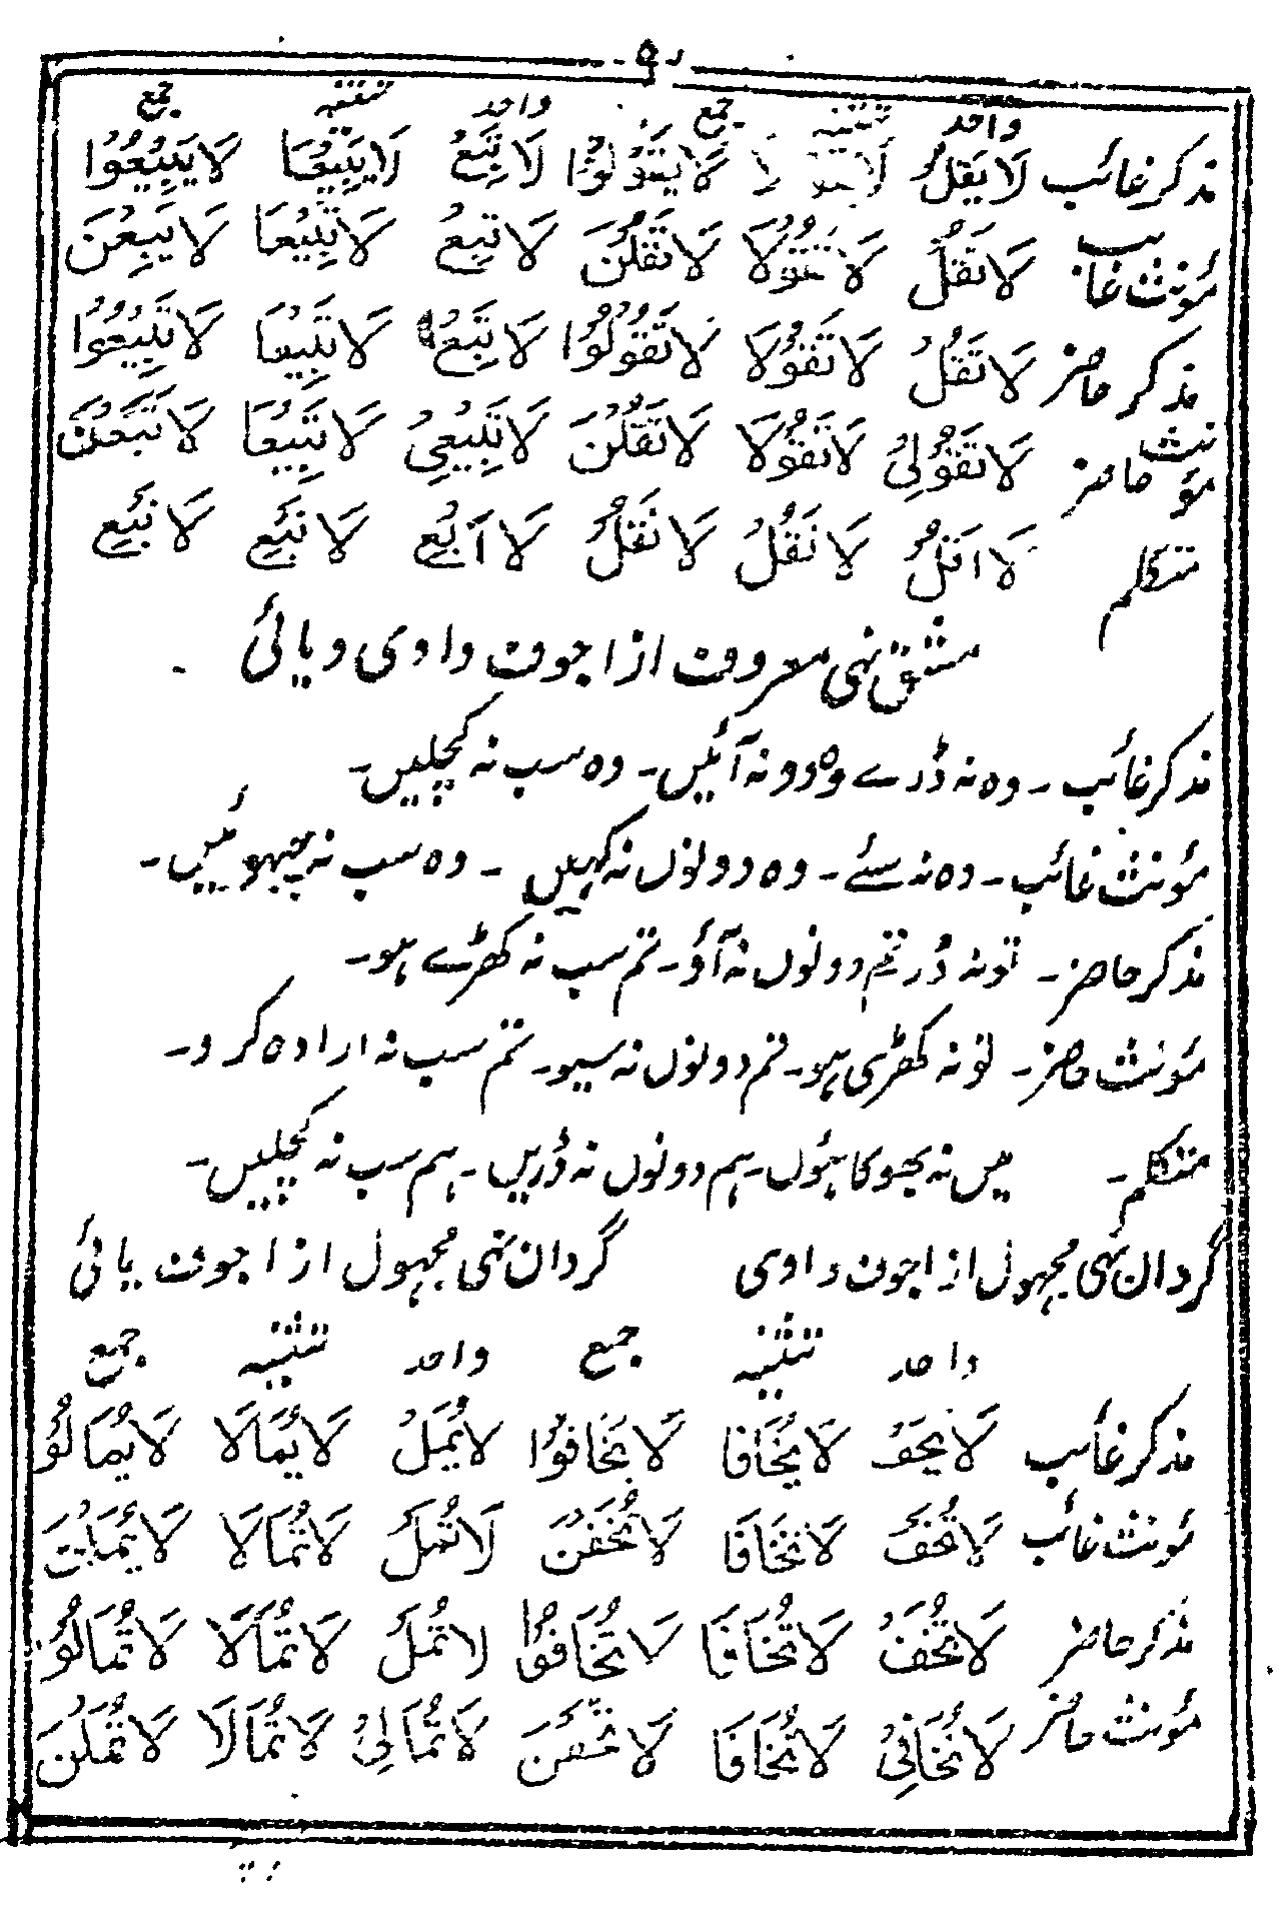 واحد تثنیہ جمع واحد تثنیہ جمع
مذکر غائب لَا يَقُلْ لَا يَقُوْلُوْا لَا يَبِعْ لَا يَبِيْعَا لَا يَبِيْعُوْا
مؤنث غائب لَا تَقُلْ لَا تَقُوْلَا لَا تَقُلْنَ لَا تَبِعْ لَا تَبِيْعَا لَا يَبِعْنَ
مذکر حاضر لَا تَقُلْ لَا تَقُوْلَا لَا تَقُوْلُوْا لَا تَبِعْ لَا تَبِيْعَا لَا تَبِيْعُوْا
مؤنث حاضر لَا تَقُوْلِىْ لَا تَقُوْلَا لَا تَقُلْنَ لَا تَبِيْعِىْ لَا تَبِيْعَا لَا تَبِعْنَ
متکلم لَا اَقُلْ لَا نَقُلْ لَا نَقُلْ لَا اَبِعْ لَا نَبِعْ لَا نَبِعْ
مشق نہی معروف از اجوف واوی و یائی
مذکر غائب ۔ وہ نہ ڈرے وہ دو نہ آئیں ۔ وہ سب نہ کچلیں ۔
مؤنث غائب ۔ وہ نہ سئے ۔ وہ دونوں نہ کہیں ۔ وہ سب نہ چبھوئیں ۔
مذکر حاضر ۔ تو نہ ڈر تم دونوں نہ آؤ ۔ تم سب نہ کھڑے ہو ۔
مؤنث حاضر ۔ تو نہ کھڑی ہو ۔ تم دونوں نہ سیو ۔ تم سب نہ ارادہ کرو ۔
متکلم ۔ میں نہ بھوکا ہوں ۔ ہم دونوں نہ ڈریں ۔ ہم سب نہ کچلیں ۔
گردان نہی مجہول از اجوف واوی گردان نہی مجہول از اجوف یائی
واحد تثنیہ جمع واحد تثنیہ جمع
مذکر غائب لَا يُخَفْ لَا يُخَافَا لَا يُخَافُوْا لَا يُمَلْ لَا يُمَالَا لَا يُمَالُوْ
مؤنث غائب لَا تُخَفْ لَا تُخَافَا لَا تُخَفْنَ لَا تُمَلْ لَا تُمَالَا لَا يُمَلْنَ
مذکر حاضر لَا تُخَفْ لَا تُخَافَا لَا تُخَافُوْا لَا تُمَلْ لَا تُمَالَا لَا تُمَالُوْ
مؤنث حاضر لَا تُخَافِىْ لَا تُخَافَا لَا تُخَفْنَ لَا تُمَالِىْ لَا تُمَالَا لَا تُمَلْنَ